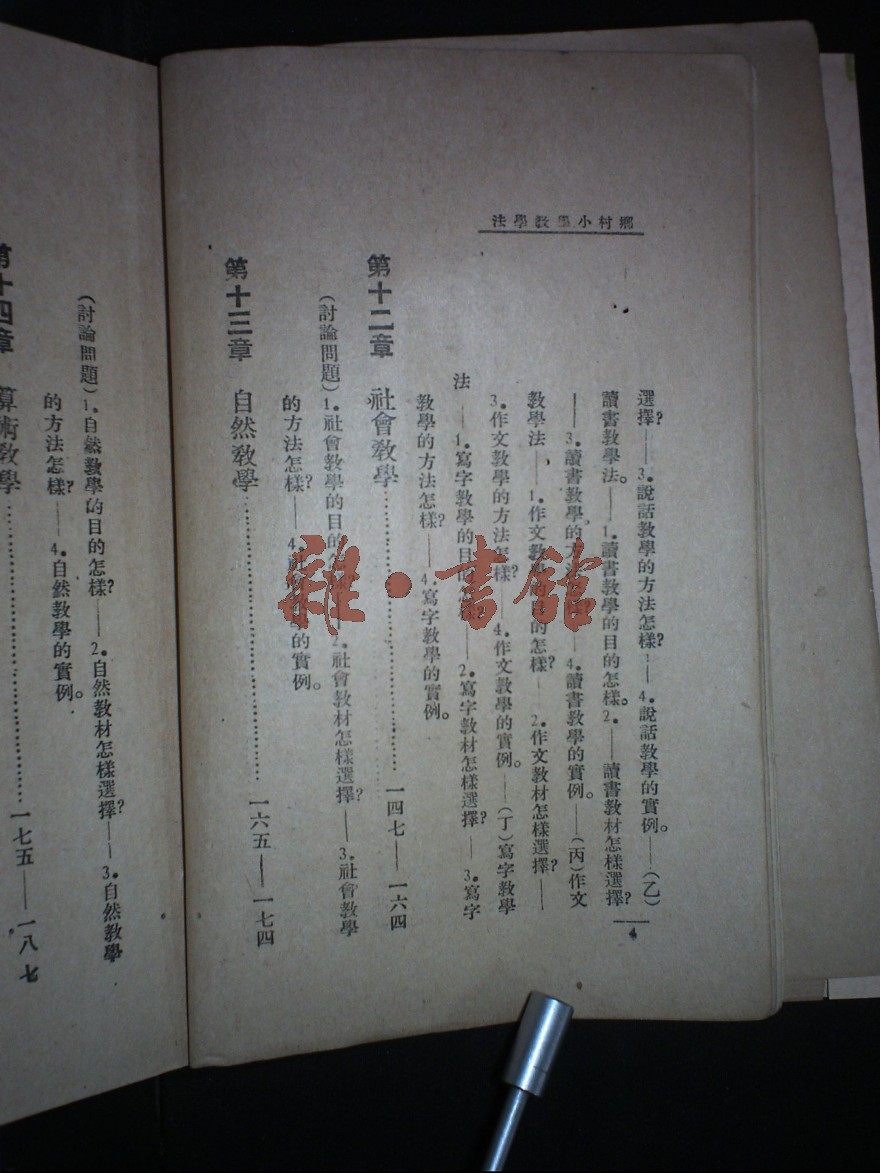 鄉村小學教學法
選擇？——3.說話教學的方法怎樣？——4.說話教學的實例。——(乙)
讀書教學法。——1.讀書教學的目的怎樣。2.——讀書教材怎樣選擇？
——3.讀書教學的方法——4.讀書教學的實例。——(丙)作文
教學法——1.作文教學的目的怎樣？——2.作文教材怎樣選擇？——
3.作文教學的方法怎樣？——4.作文教學的實例。——(丁)寫字教學
法——1.寫字教學的目的怎——2.寫字教材怎樣選擇？——3.寫字
教學的方法怎樣？——4.寫字教學的實例。
第十二章 社會教學……一四七——一六四
(討論問題)1.社會教學的目的——2.社會教材怎樣選擇？——3.社會教學
的方法怎樣？——4.社會教學的實例。
第十三章 自然教學……一六五——一七四
(討論問題)1.自然教學的目的怎樣？——2.自然教材怎樣選擇？——3.自然教學
的方法怎樣？——4.自然教學的實例。
第十四章 算術教學……一七五——一八七
4
雜·書館